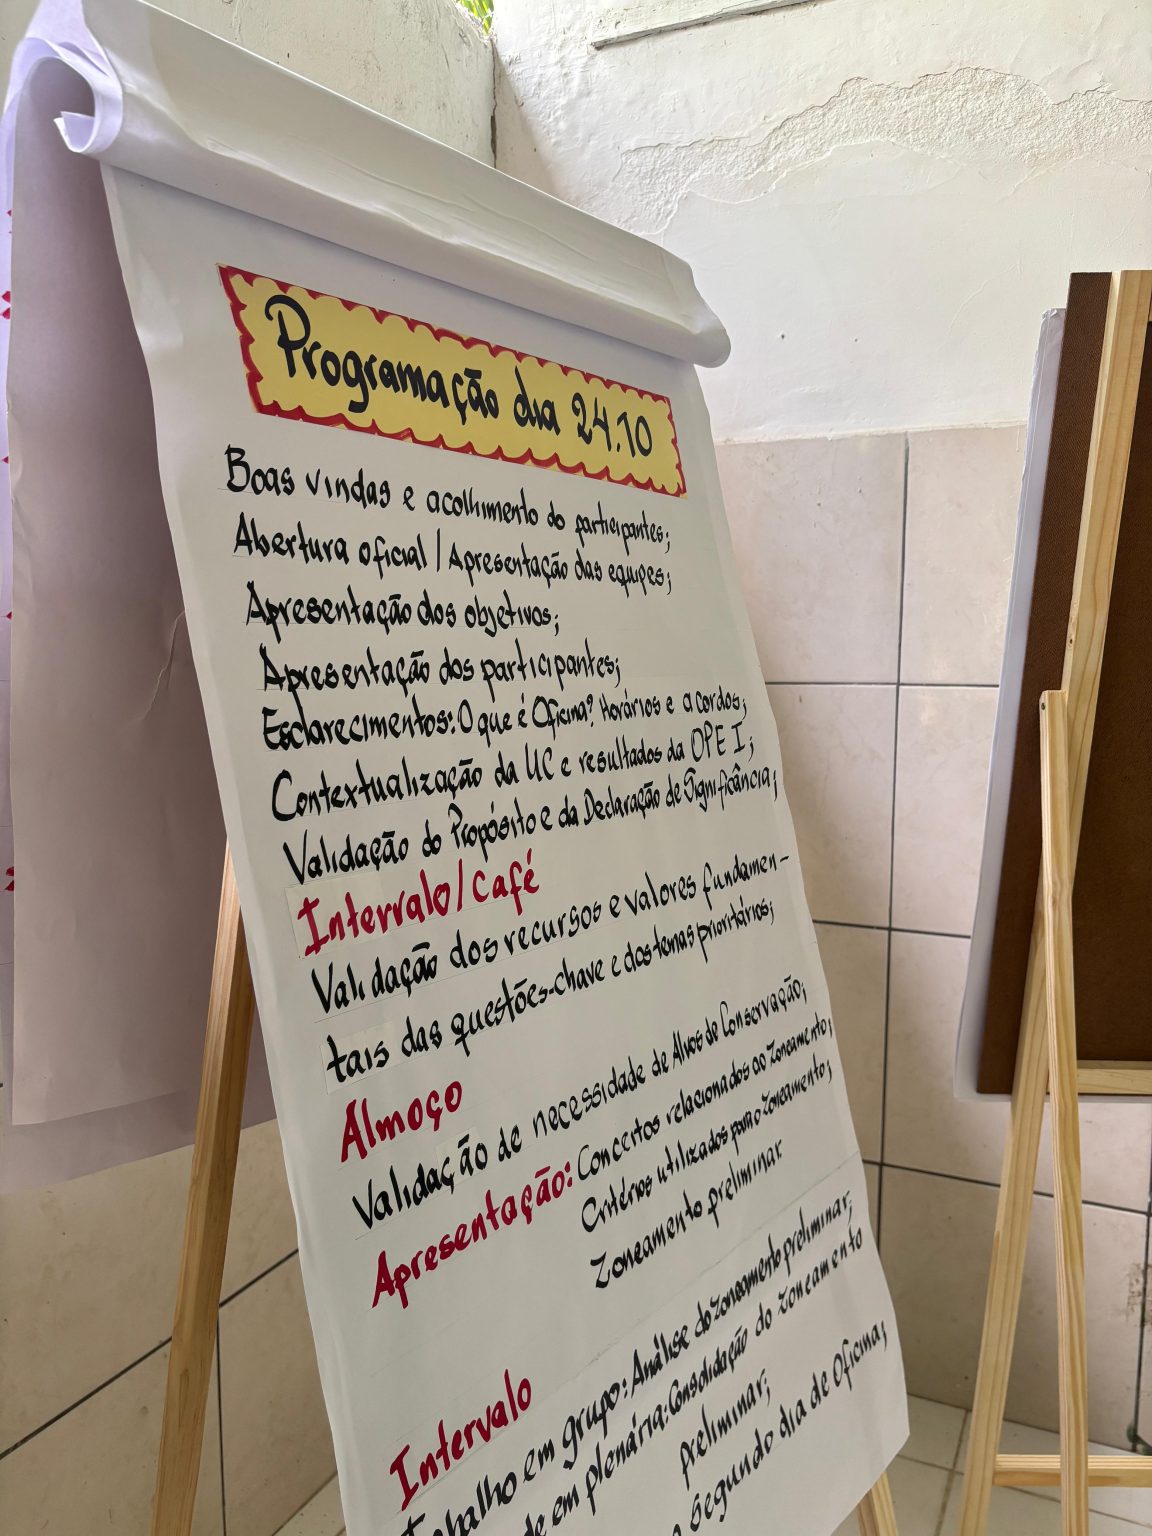 Programação dia 24.10
Boas vindas e acolhimento do participantes;
Abertura oficial / Apresentação das equipes;
Apresentação dos objetivos;
Apresentação dos participantes;
Esclarecimentos: O que é Oficina? Horários e acordos;
Contextualização da UC e resultados da OPE I;
Validação do Propósito e da Declaração de Significância;
Intervalo/Café
Validação dos recursos e valores fundamen-
tais das questões-chave e dos temas prioritários;
Almoço
Validação de necessidade de Alvos de Conservação;
Apresentação: Conceitos relacionados ao zoneamento;
Critérios utilizados para o zoneamento;
Zoneamento preliminar
Intervalo
Trabalho em grupo: Análise do zoneamento preliminar;
em plenária: Consolidação do zoneamento
preliminar;
segundo dia de Oficina;